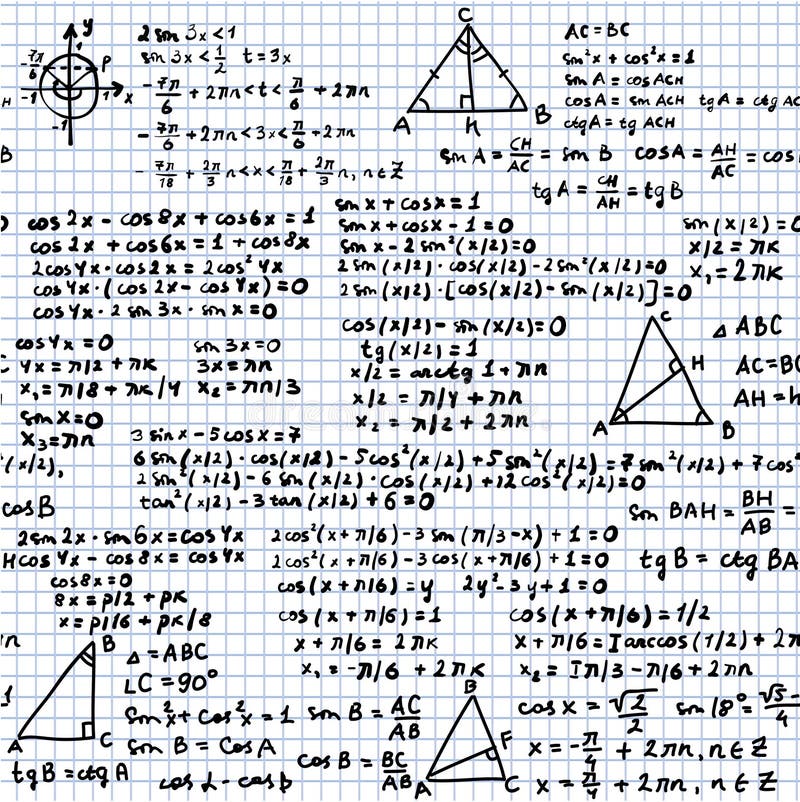 y
1
-7π/6
P
H
-1
1
x
-1
B
2 sin 3x < 1
sin 3x < 1/2 t = 3x
-7π/6 + 2πn < t < π/6 + 2πn
-7π/6 + 2πn < 3x < π/6 + 2πn
-7π/18 + 2π/3 n < x < π/18 + 2π/3 n, n∈Z
C
A
H
B
AC = BC
sin²x + cos²x = 1
sin A = cos ACH
cos A = sin ACH tg A = ctg AC
ctg A = tg ACH
sin A = CH/AC = sin B cos A = AH/AC = cos
tg A = CH/AH = tg B
cos 2x - cos 8x + cos 6x = 1
cos 2x + cos 6x = 1 + cos 8x
2 cos 4x · cos 2x = 2 cos² 4x
cos 4x · (cos 2x - cos 4x) = 0
cos 4x · 2 sin 3x · sin x = 0
sin x + cos x = 1
sin x + cos x - 1 = 0
sin x - 2 sin² (x/2) = 0
2 sin (x/2) · cos (x/2) - 2 sin² (x/2) = 0
2 sin (x/2) · [cos (x/2) - sin (x/2)] = 0
sin (x/2) = 0
x/2 = πк
x₁ = 2πк
cos 4x = 0
4x = π/2 + πк
x₁ = π/8 + πк/4
sin 3x = 0
3x = πn
x₂ = πn/3
sin x = 0
x₃ = πn
cos (x/2) - sin (x/2) = 0
tg (x/2) = 1
x/2 = arctg 1 + πn
x/2 = π/4 + πn
x₂ = π/2 + 2πn
C
H
A
B
△ ABC
AC = BC
AH = h
3 sin x - 5 cos x = 7
(x/2), 6 sin (x/2) · cos (x/2) - 5 cos² (x/2) + 5 sin² (x/2) = 7 sin² (x/2) + 7 cos²
2 sin² (x/2) - 6 sin (x/2) · cos (x/2) + 12 cos² (x/2) = 0
tan² (x/2) - 3 tan (x/2) + 6 = 0
cos B
sin BAH = BH/AB =
tg B = ctg BA
2 sin 2x · sin 6x = cos 4x
Hcos 4x - cos 8x = cos 4x
cos 8x = 0
8x = p/2 + pк
x = p/16 + pк/8
2 cos² (x + π/6) - 3 sin (π/3 - x) + 1 = 0
2 cos² (x + π/6) - 3 cos (x + π/6) + 1 = 0
cos (x + π/6) = y 2y² - 3y + 1 = 0
cos (x + π/6) = 1
x + π/6 = 2πк
x₁ = -π/6 + 2πк
cos (x + π/6) = 1/2
x + π/6 = ± arccos (1/2) + 2π
x₂ = ±π/3 - π/6 + 2πn
B
A
C
△ = ABC
∠C = 90°
sin²x + cos²x = 1 sin B = AC/AB
sin B = cos A
tg B = ctg A
cos B = BC/AB
B
F
A
C
cos x = √2/2 sin 18° = √5-/4
x = -π/4 + 2πn, n∈Z
x = π/4 + 2πn, n∈Z